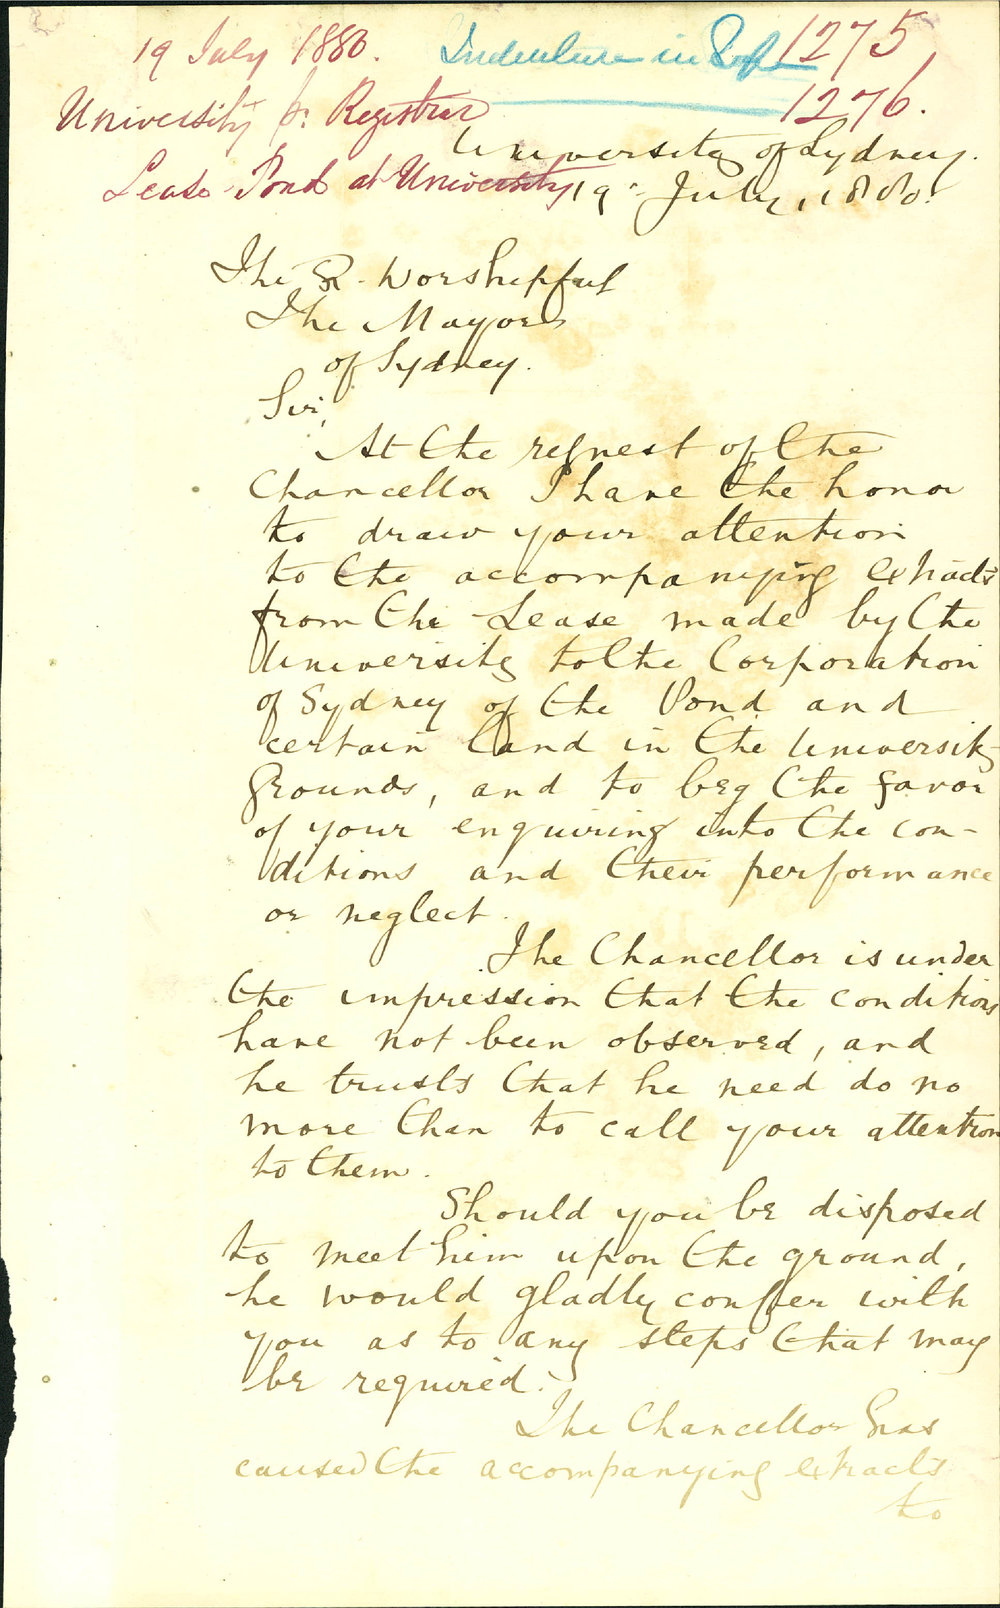 19 July 1880. Indenture in Safe 1275,
1276.
University pr. Registrar
University of Sydney.
Lease Pond at University 19 July, 1880.
The R. Worshipful
The Mayor
of Sydney.
Sir,
At the request of the
Chancellor I have the honor
to draw your attention
to the accompanying extracts
from the Lease made by the
University to the Corporation
of Sydney of the Pond and
certain land in the University
Grounds, and to beg the favor
of your enquiring into the con-
ditions and their performance
or neglect.
The Chancellor is under
the impression that the conditions
have not been observed, and
he trusts that he need do no
more than to call your attention
to them.
Should you be disposed
to meet him upon the ground,
he would gladly confer with
you as to any steps that may
be required.
The Chancellor has
caused the accompanying extracts
to